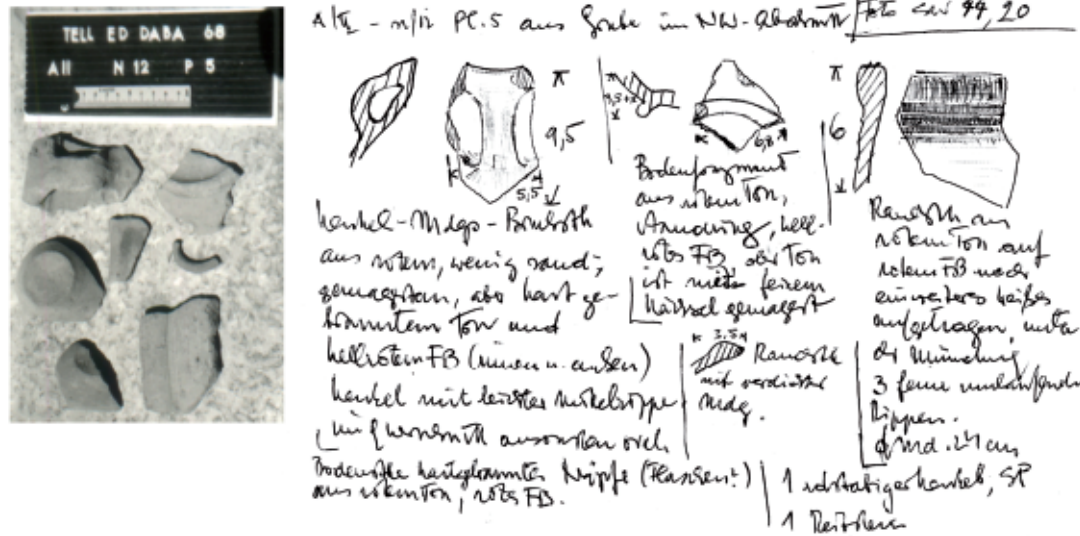 TELL ED DABA 68
A II N 12 P 5
A/II - n/12 Pl. 5 aus Grube im NW-Abschnitt Foto 44, 20
9,5
5,5
6,8
6
Henkel-Mdgs-Bruchstk
aus rotem, wenig sand-
gemagertem, aber hart ge-
branntem Ton und
hellrotem FB (innen u. außen)
Henkel mit leichter Mittelrippe
im Querschnitt ansonsten
Bodenstke hartgebrannter Näpfe (Flaschen?)
aus rotem Ton, rotes FB.
Bodenfragment
aus rotem Ton,
hell-
rotes FB der Ton
ist mit feinem
Häcksel gemagert
3,5
Randstk
mit verdickter
Mdg.
Randstk aus
rotem Ton auf
rotem FB noch
ein weiteres
aufgetragen, unter
der Mündung
3 feine umlaufende
Rippen.
Md. 24 cm
1 Henkel, SP
1